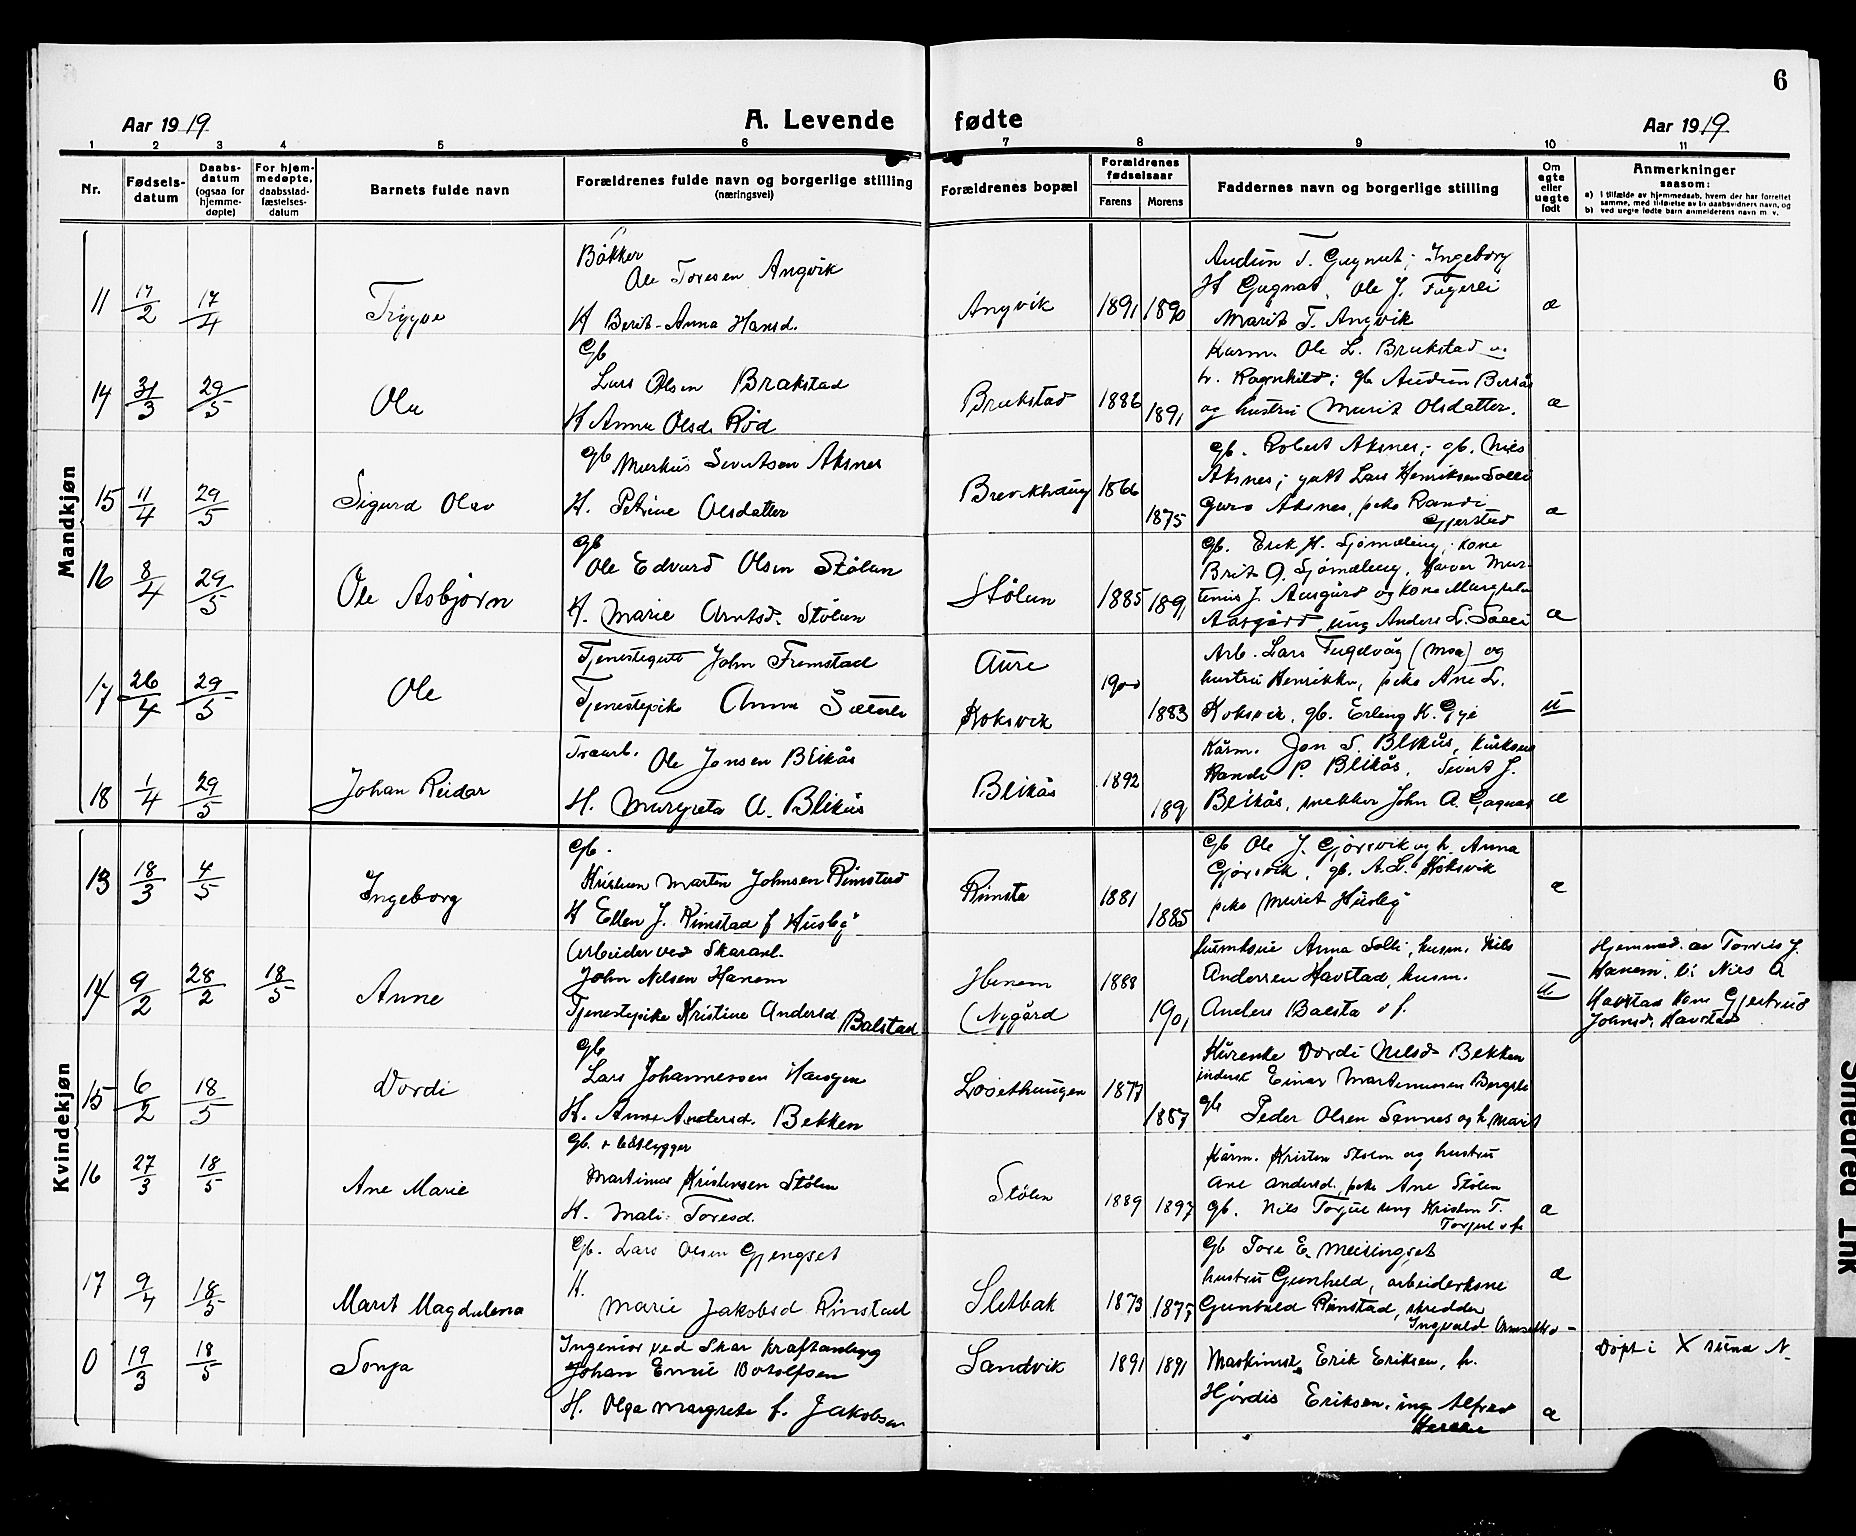 6
Aar 1919
A. Levende fødte
Aar 1919
1 2 3 4 5 6 7 8 9 10 11
Nr.
Fødsels-
datum
Daabs-
datum
(ogsaa for
hjemme-
døpte)
For hjem-
medøpte,
daabsstad-
fæstelses-
datum
Barnets fulde navn
Forældrenes fulde navn og borgerlige stilling
(næringsvei)
Forældrenes bopæl
Forældrenes
fødselsaar
Farens Morens
Faddernes navn og borgerlige stilling
Om
egte
eller
uegte
født
Anmerkninger
saasom:
a) i tilfælde av hjemmedaab, hvem der har forrettet
samme, med tilføielse av to daabsvidners navn, og
b) ved uegte fødte barn anmelderens navn m. v.
Mandkjøn
11 17/2 17/4 Trygve
Bøkker
Ole Toresen Angvik
H Berit-Anna Hansd.
Angvik 1891 1890
Audun T. Gagnat; Ingeborg
H Gagnat, Ole J. Fugerli
Marit T. Angvik
æ
14 31/3 29/5 Ola
Gb
Lars Olsen Brakstad
H Anna Olsd. Rød
Brakstad 1886 1891
Kaarm. Ole L. Brakstad
h. Ragnhild; gb Audun
og hustru Marit Olsdatter.
æ
15 11/4 29/5 Sigurd Olav
gb Markus Sivertsen Aksnes
H. Petrine Olsdatter
1866 1875
gb. Robert Aksnes; gb. Nils
Aksnes; Lars Henriksen Solli
Guro Aksnes, pike Randi
Gjerstad
æ
16 8/4 29/5 Ole Asbjørn
gb
Ole Edvard Olsen Stølen
H. Marie Arntsd. Stølen
Stølen 1885 1891
gb. Erik H. Sjømæling, kone
Brit O. Sjømæling, Mar-
tinus J. Aasgård og kone
Aasgård, ung Anders L. Solli
æ
17 26/4 29/5 Ole
Tjenestegutt John Fremstad
Tjenestepike Anna
Aure
Koksvik
1900 1883
Arb. Lars Tugelvåg (Moa) og
hustru Henrikke, pike Ane L.
Koksvik, gb. Erling K. Gje
u
18 1/4 29/5 Johan Reidar
Ole Jonsen Blikås
H. Margrete A. Blikås
Blikås 1892 189
Kårm. Jon S. Blikås, kårkone
Rande P. Blikås, Sivert J.
Blikås, snekker John A. Gagnat
æ
Kvindekjøn
13 18/3 4/5 Ingeborg
gb.
Kristian Martin Johnsen Rimstad
H Ellen J. Rimstad f Husby
Rimsta 1881 1885
Gb Ole J. Gjørsvik og h. Anna
Gjørsvik, gb. A.L. Koksvik
pike Marit Husby
æ
14 9/2 28/2 18/5 Anne
Arbeider ved Skaranl.
John Nilsen Hanem
Tjenestepike Kristine Andersd Balstad
Hanem
(Nygård
1888 1901
Anna Solli, husm. Nils
Andersen Havstad, husm.
Anders Balsta o f.
u
Hjemmed. av Torris J.
Hanem, Nils A
Havstad kone Gjertrud
Johnsd. Havstad
15 6/2 18/5 Dordi
gb
Lars Johannessen Haugen
H. Anne Andersd. Bekken
1877 1887
Kårenke Dordi Nilsd. Bekken
inderst Einar Martinussen
gb Peder Olsen Sannes og h. Marit
16 27/3 18/5 Ane Marie
gb. + båtbygger
Martinus Kristensen Stølen
H. Mali Toresd.
Stølen 1889 1897
Kårm. Kristen Stølen og hustru
Ane Andersd., pike Ane Stølen
gb. Nils Torjul ung Kristen T.
Torjul o fl
æ
17 9/4 18/5 Marit Magdalena
Gb. Lars Olsen Gjengset
H.
Marie Jakobsd Rimstad
Sletbak 1873 1875
Gb Tore E. Meisingset
hustru Gunhild, arbeiderkone
Gunhild Rimstad, skredder
Ingvald
æ
0 19/3 18/5 Sonja
Ingeniør ved Skar kraftanlegg
Johan Emil Botolfsen
H. Olga Margrete f. Jakobsen
Sandvik 1891 1891
Maskinist Erik Eriksen, h.
Hjørdis Eriksen, ing Alfred
æ
Døpt i X N.
Smedrød Thk